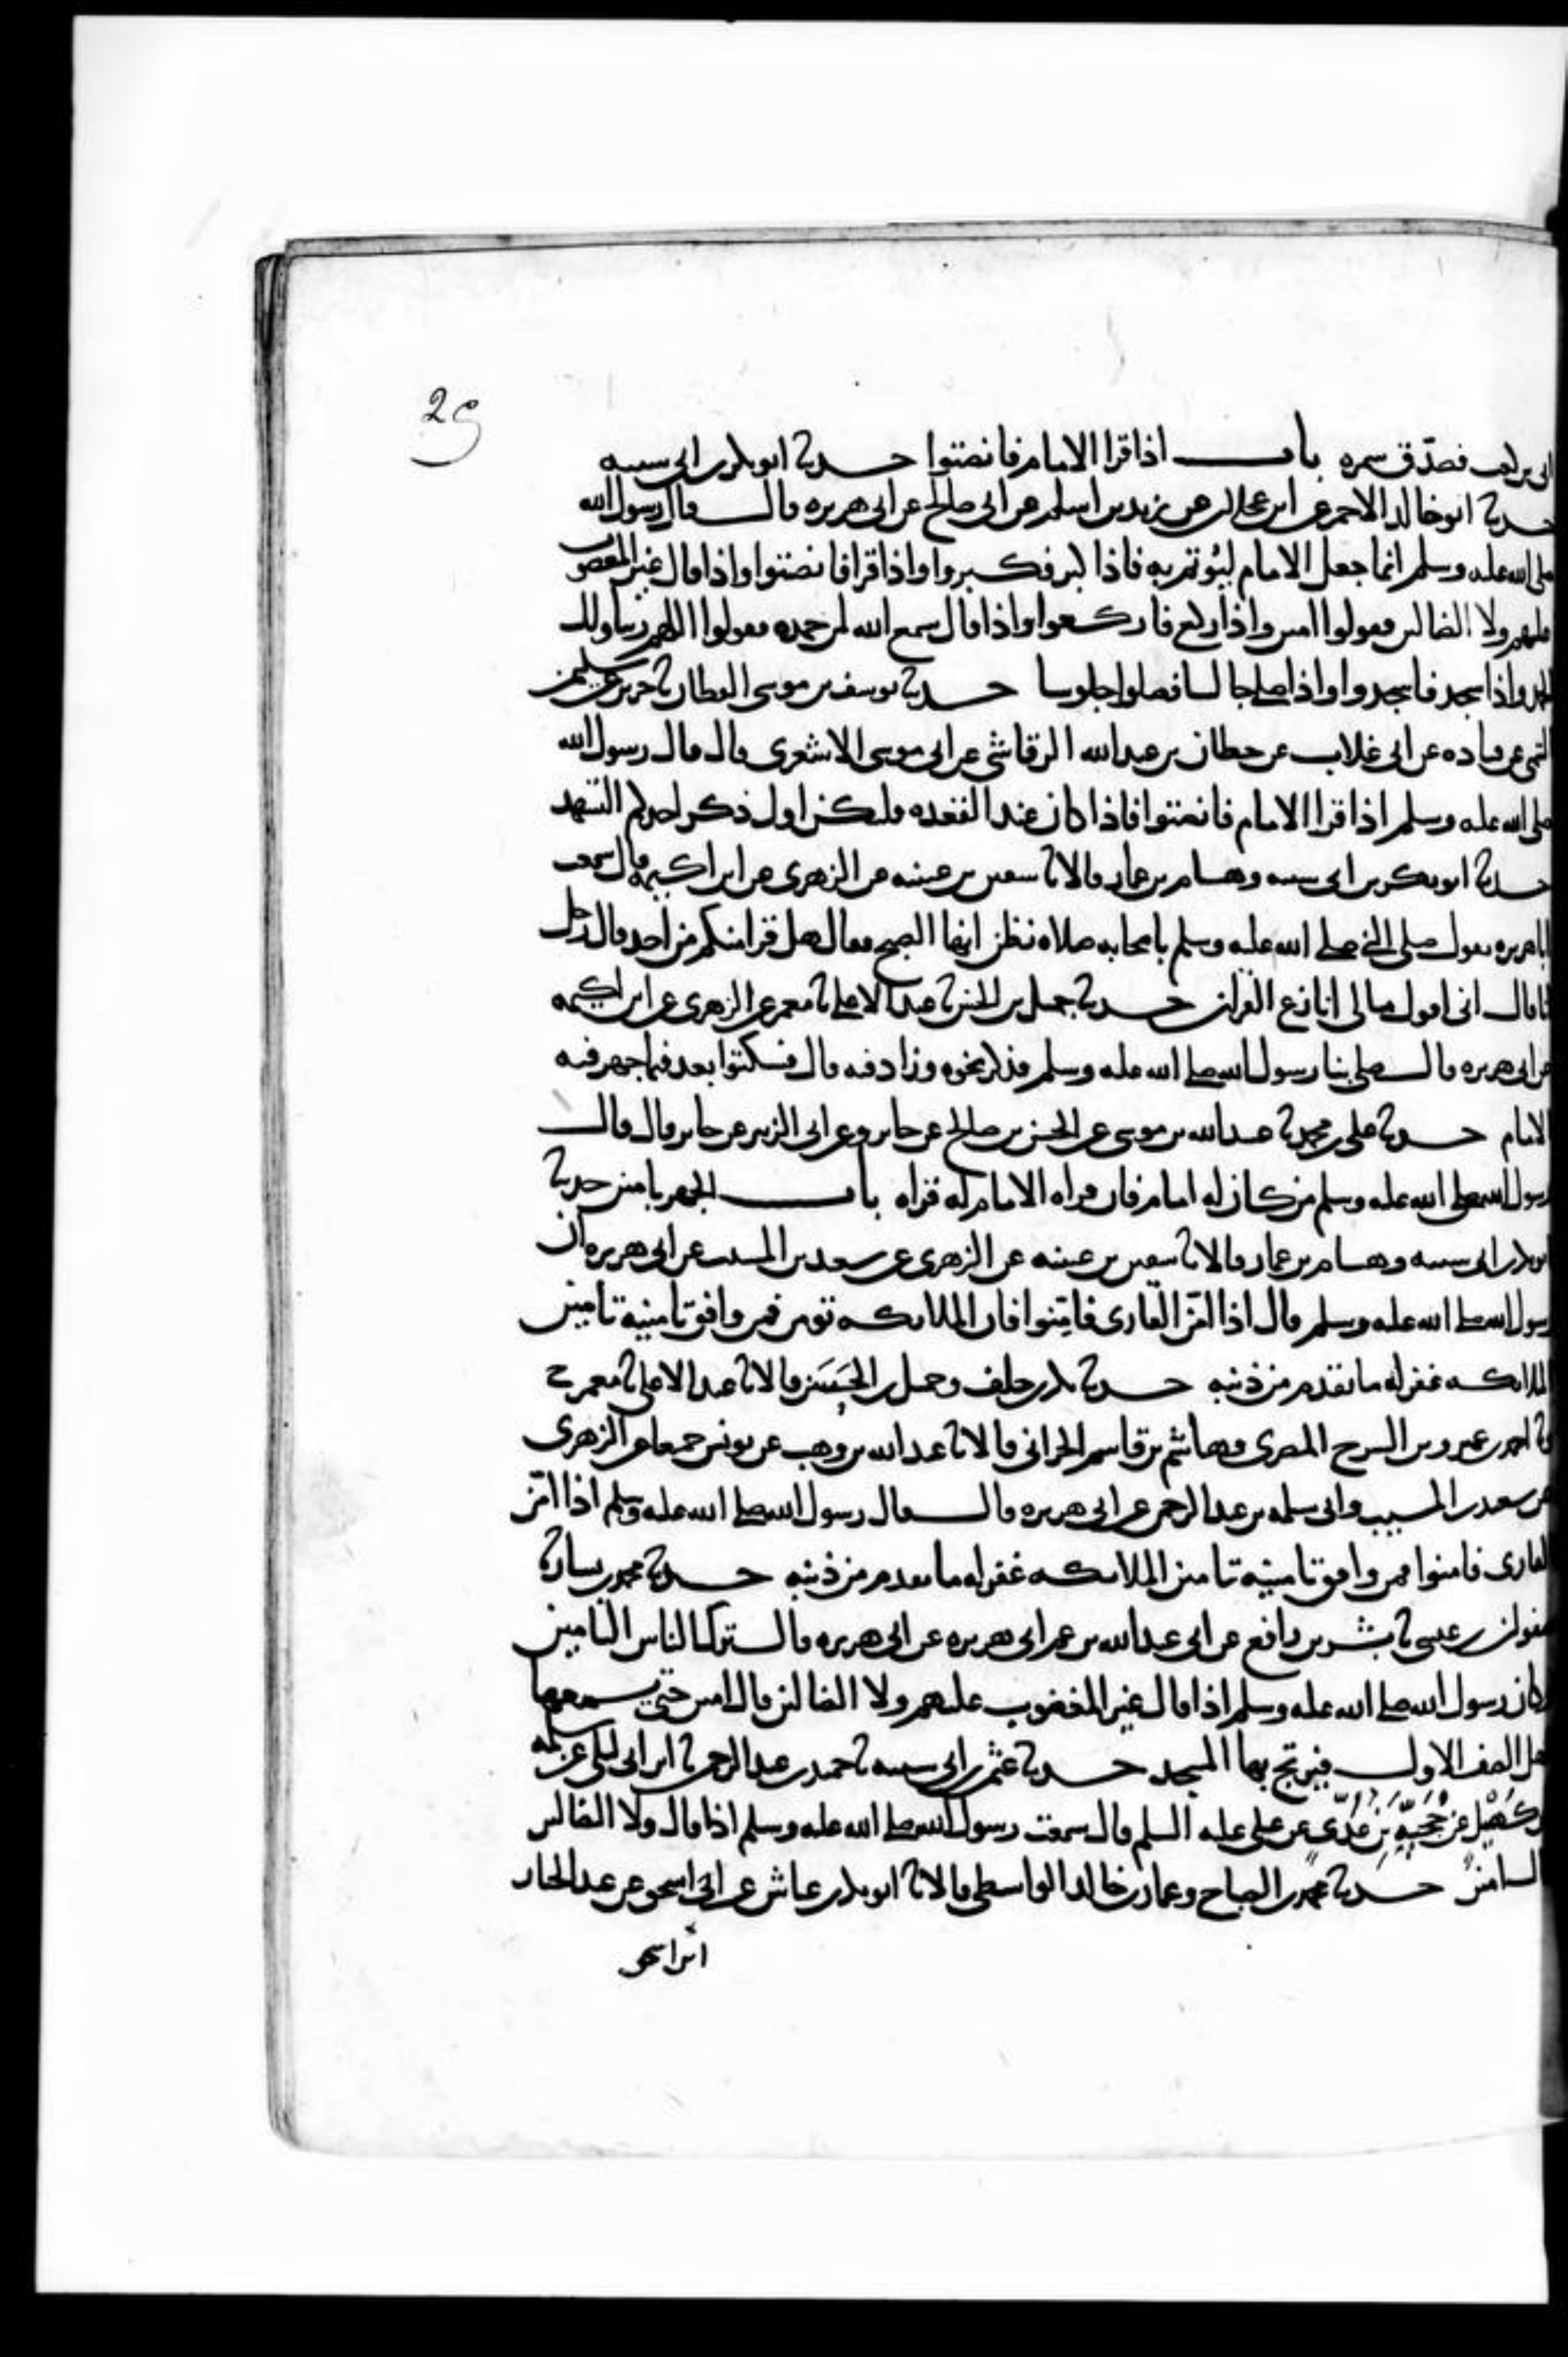 29
ابى بن كعب فصدق سمره باب اذا قرا الامام فانصتوا حدثنا ابو بكر بن ابى شيبه
حدثنا ابو خالد الاحمر عن ابن عجلان عن زيد بن اسلم عن ابى صالح عن ابى هريره قال قال رسول الله
صلى الله عليه وسلم انما جعل الامام ليؤتم به فاذا كبر فكبروا واذا قرا فانصتوا واذا قال غير المغضوب
عليهم ولا الضالين فقولوا امين واذا ركع فاركعوا واذا قال سمع الله لمن حمده فقولوا اللهم ربنا ولك
الحمد واذا سجد فاسجدوا واذا صلى جالسا فصلوا جلوسا حدثنا يوسف بن موسى القطان ثنا جرير عن سليمن
التيمى عن قتاده عن ابى غلاب عن حطان بن عبد الله الرقاشى عن ابى موسى الاشعرى قال قال رسول الله
صلى الله عليه وسلم اذا قرا الامام فانصتوا فاذا كان عند القعده فليكن اول ذكر احدكم التشهد
حدثنا ابو بكر بن ابى شيبه وهشام بن عمار قالا ثنا سفين بن عيينه عن الزهرى عن ابن اكيمه قال سمعت
ابا هريره يقول صلى النبى صلى الله عليه وسلم باصحابه صلاه نظن انها الصبح فقال هل قرا منكم من احد قال رجل
انا قال انى اقول مالى انازع القران حدثنا جميل بن الحسن ثنا عبد الاعلى ثنا معمر عن الزهرى عن ابن اكيمه
عن ابى هريره قال صلى بنا رسول الله صلى الله عليه وسلم فذكر نحوه وزاد فيه قال فسكتوا بعد فيما جهر فيه
الامام حدثنا على بن محمد ثنا عبيد الله بن موسى عن الحسن بن صالح عن جابر وعن ابى الزبير عن جابر قال قال
رسول الله صلى الله عليه وسلم من كان له امام فان قراه الامام له قراه باب الجهر بامين حدثنا
ابو بكر بن ابى شيبه وهشام بن عمار قالا ثنا سفين بن عيينه عن الزهرى عن سعيد بن المسيب عن ابى هريره ان
رسول الله صلى الله عليه وسلم قال اذا امّن القارى فامّنوا فان الملائكه تومن فمن وافق تامينه تامين
الملائكه غفر له ما تقدم من ذنبه حدثنا بكر بن خلف وجميل بن الحسن قالا ثنا عبد الاعلى ثنا معمر ح
وثنا احمد بن عمرو بن السرح المصرى وهاشم بن قاسم الحرانى قالا ثنا عبد الله بن وهب عن يونس جميعا عن الزهرى
عن سعيد بن المسيب وابى سلمه بن عبد الرحمن عن ابى هريره قال قال رسول الله صلى الله عليه وسلم اذا امّن
القارى فامنوا فمن وافق تامينه تامين الملائكه غفر له ما تقدم من ذنبه حدثنا محمد بن بشار ثنا
صفوان بن عيسى ثنا بشر بن رافع عن ابى عبد الله بن عم ابى هريره عن ابى هريره قال ترك الناس التامين
وكان رسول الله صلى الله عليه وسلم اذا قال غير المغضوب عليهم ولا الضالين قال امين حتى يسمعها
اهل الصف الاول فيرتج بها المسجد حدثنا عثمن بن ابى شيبه ثنا حميد بن عبد الرحمن ثنا ابن ابى ليلى عن سلمه
بن كهيل عن حجيّه بن عدى عن على عليه السلم قال سمعت رسول الله صلى الله عليه وسلم اذا قال ولا الضالين
قال امين حدثنا محمد بن الصباح وعمار بن خالد الواسطى قالا ثنا ابو بكر بن عياش عن ابى اسحق عن عبد الجبار